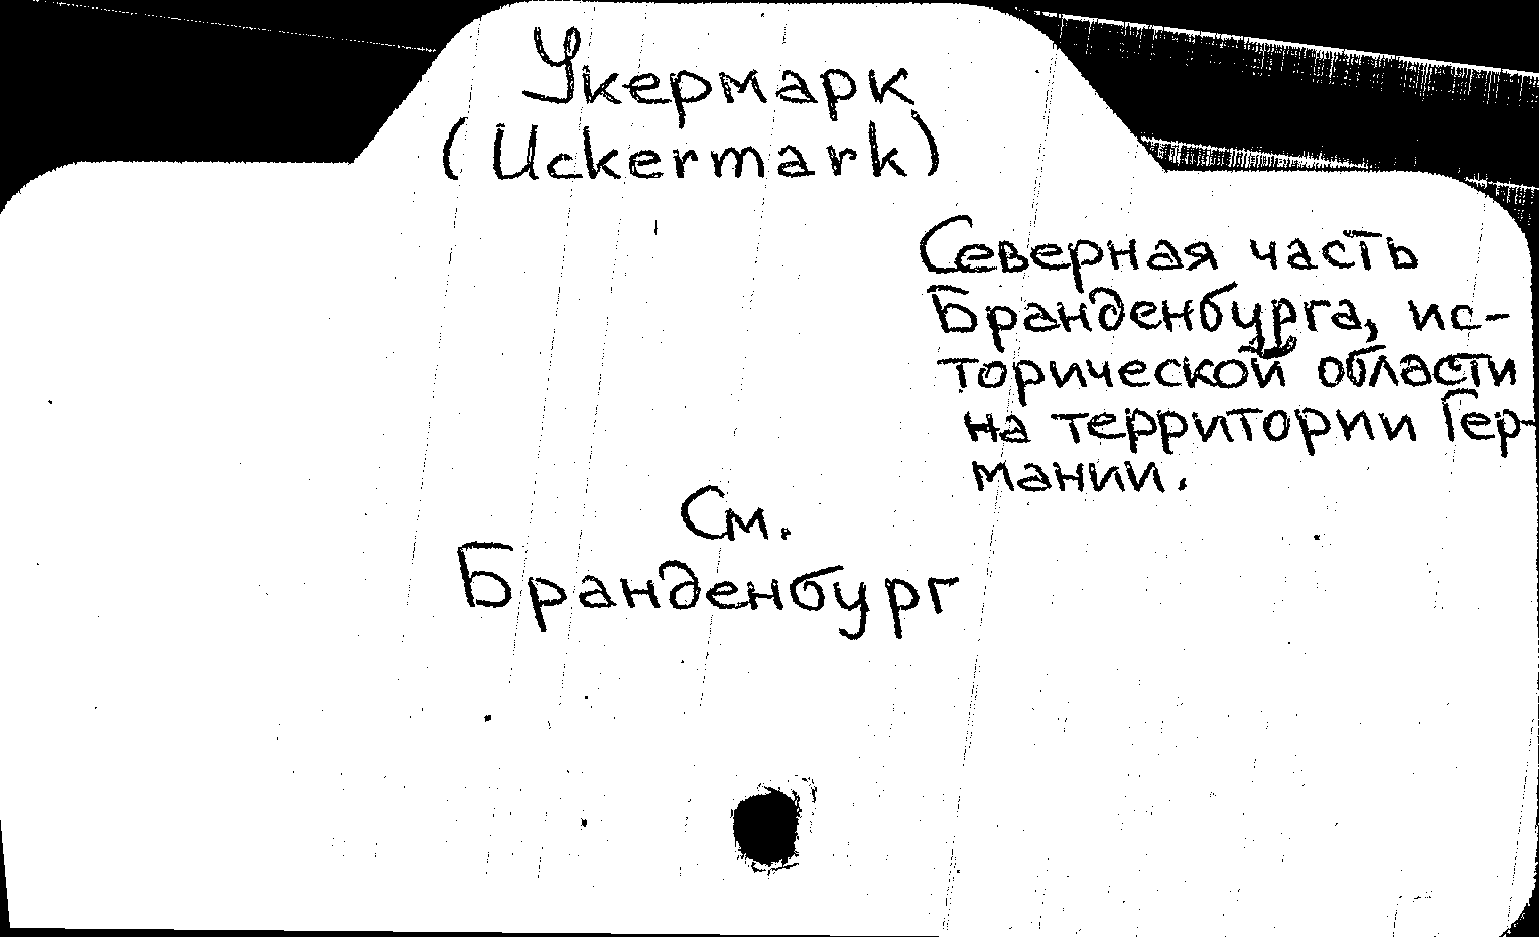 Укермарк
(Uckermark)
Северная часть
Бранденбурга, ис-
торической области
на территории Гер-
мании.
См.
Бранденбург